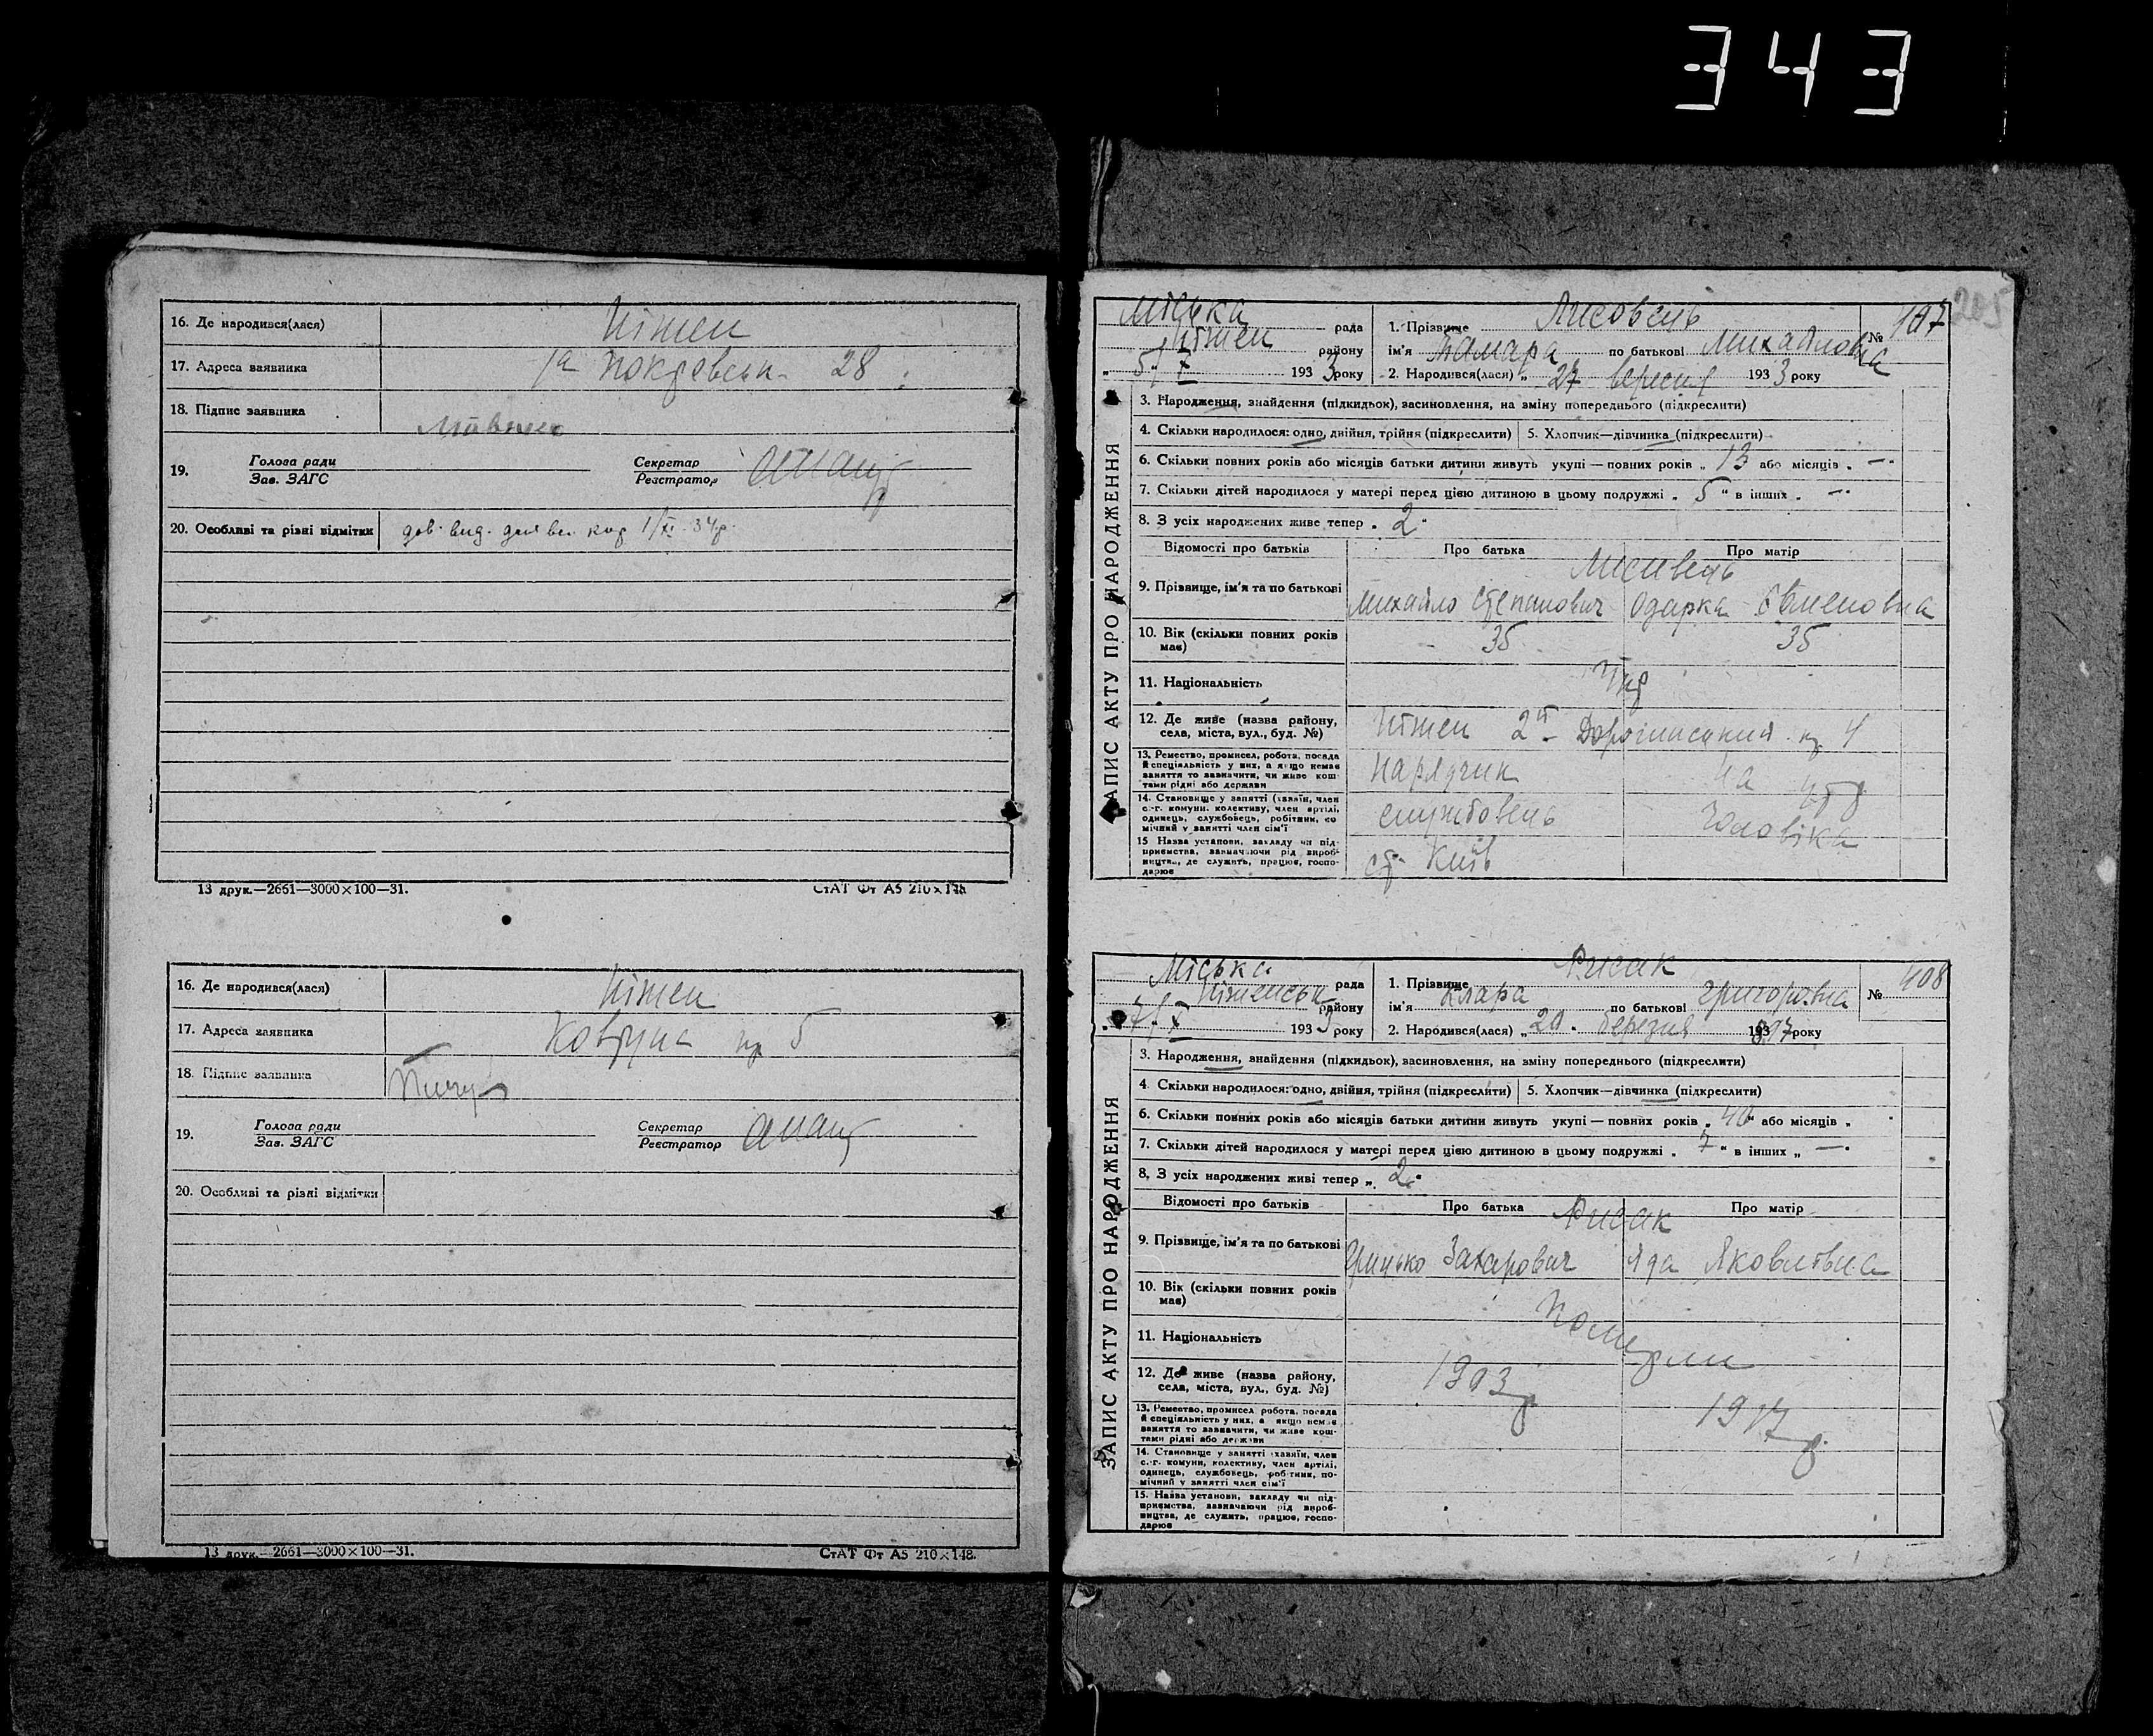 343
16. Де народився(лася) Ніжен
17. Адреса заявника 1а Покровськ. 28
18. Підпис заявника
19. Голова ради Секретар
Зав. ЗАГС Реєстратор
20. Особливі та різні відмітки дов. вид. 1/XI 34р.
13 друк.—2661—3000×100—31. СтАТ Фт А5 210×148
16. Де народився(лася) Ніжен
17. Адреса заявника 5
18. Підпис заявника
19. Голова ради Секретар
Зав. ЗАГС Реєстратор
20. Особливі та різні відмітки
13 друк.—2661—3000×100—31. СтАТ Фт А5 210×148.
205
ЗАПИС АКТУ ПРО НАРОДЖЕННЯ
Міська рада
Ніжен району
„ 5/X 1933 року
1. Прізвище Лисовець № 407
ім'я Тамара по батькові Михайловна
2. Народився(лася) „ 27 вересня 1933 року
3. Народження, знайдення (підкидьок), засиновлення, на зміну попереднього (підкреслити)
4. Скільки народилося: одно, двійня, трійня (підкреслити) 5. Хлопчик—дівчинка (підкреслити)
6. Скільки повних років або місяців батьки дитини живуть укупі — повних років „ 13 або місяців „ —
7. Скільки дітей народилося у матері перед цією дитиною в цьому подружжі „ 5 " в інших „ —
8. З усіх народжених живе тепер „ 2
Відомості про батьків Про батька Про матір
Лисивець
9. Прізвище, ім'я та по батькові Михайло Степанович Одарка
10. Вік (скільки повних років має) 35 35
11. Національність Укр
12. Де живе (назва району, села, міста, вул., буд. №) Ніжен 4
13. Ремество, промисел, робота, посада й спеціяльність у них, а якщо немає заняття то зазначити, чи живе коштами рідні або держави Нарядчик на утр
14. Становище у занятті (хазяїн, член с.-г. комуни, колективу, член артілі, одинець, службовець, робітник, помічний у занятті член сім'ї службовець чоловіка
15 Назва установи, закладу чи підприємства, зазначаючи рід виробництва, де служить, працює, господарює ст. Київ
ЗАПИС АКТУ ПРО НАРОДЖЕННЯ
Міська рада
Ніженськ району
„ 7/X 1933 року
1. Прізвище Рисак № 408
ім'я Клара по батькові Григоровна
2. Народився(лася) „ 20 березня 1897 року
3. Народження, знайдення (підкидьок), засиновлення, на зміну попереднього (підкреслити)
4. Скільки народилося: одно, двійня, трійня (підкреслити) 5. Хлопчик—дівчинка (підкреслити)
6. Скільки повних років або місяців батьки дитини живуть укупі — повних років „ 40 або місяців „
7. Скільки дітей народилося у матері перед цією дитиною в цьому подружжі „ 7 " в інших „ —
8. З усіх народжених живі тепер „ 2
Відомості про батьків Про батька Про матір
Рисак
9. Прізвище, ім'я та по батькові Грицько Захарович Яковлівна
10. Вік (скільки повних років має)
Померли
11. Національність
12. Де живе (назва району, села, міста, вул., буд. №) 1903р 1917р.
13. Ремество, промисел, робота, посада й спеціяльність у них, а якщо немає заняття то зазначити, чи живе коштами рідні або держави
14. Становище у занятті (хазяїн, член с.-г. комуни, колективу, член артілі, одинець, службовець, робітник, помічний у занятті член сім'ї
15. Назва установи, закладу чи підприємства, зазначаючи рід виробництва, де служить, працює, господарює